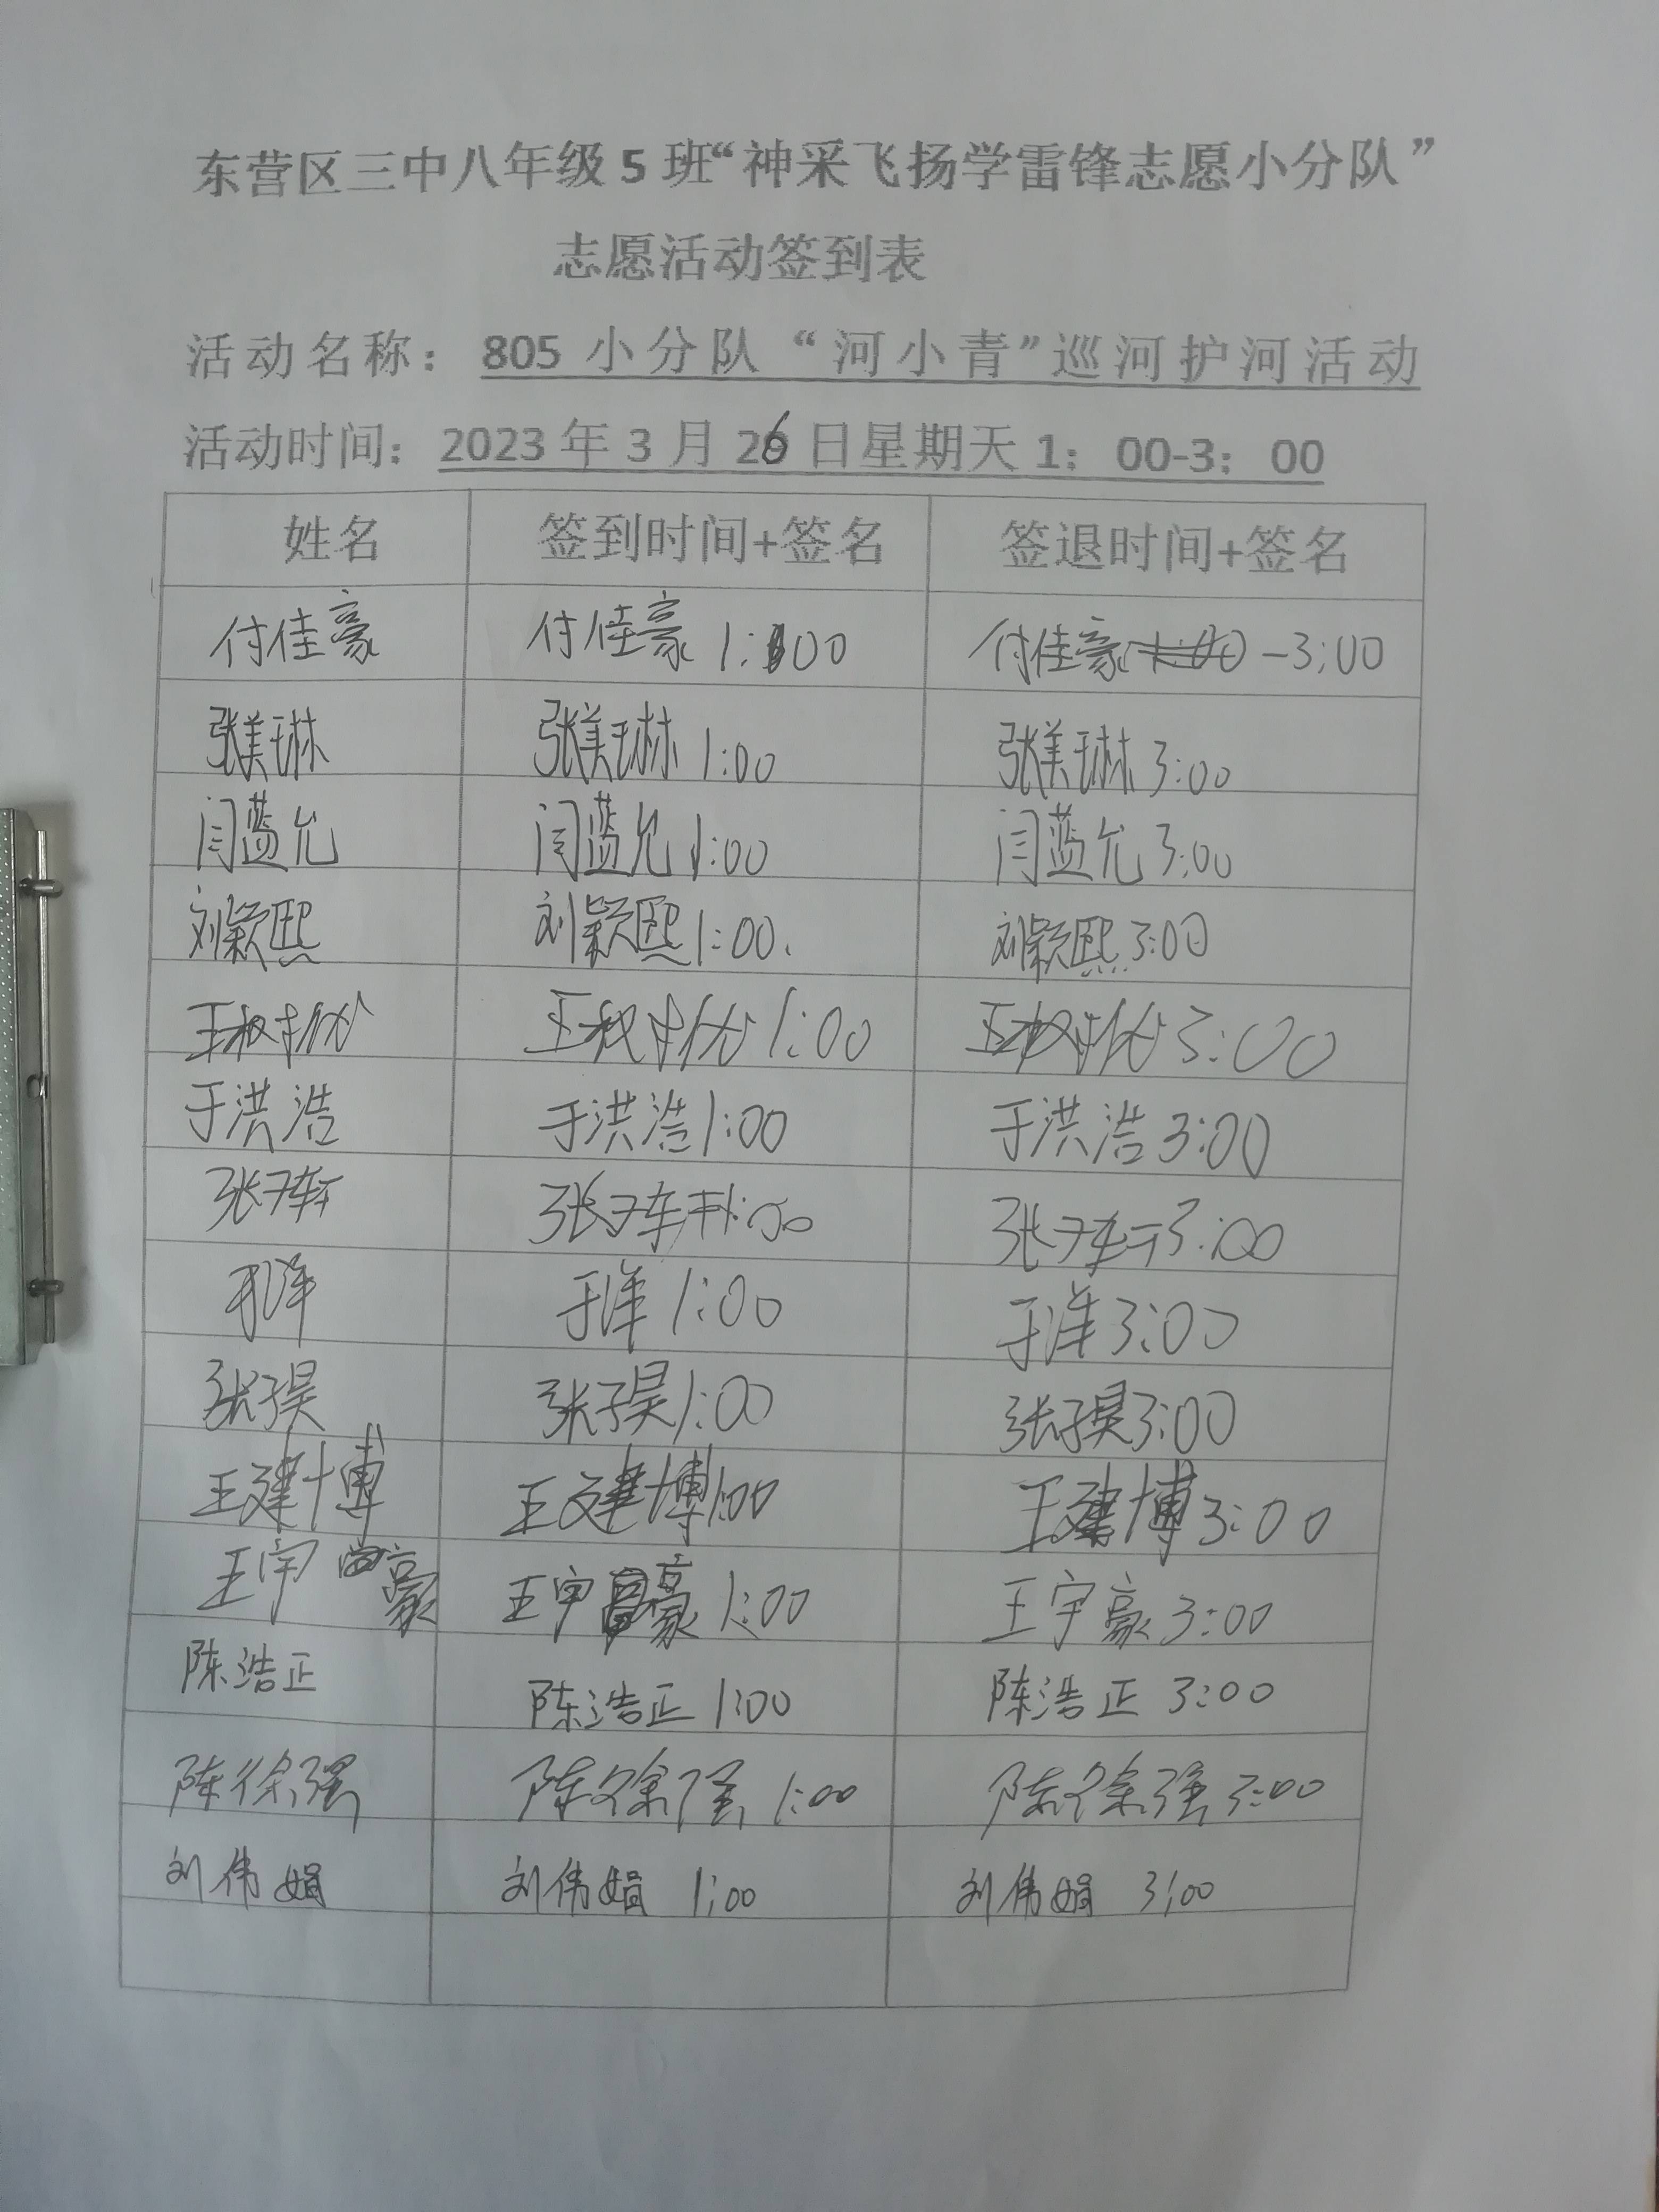 东营区三中八年级5班“神采飞扬学雷锋志愿小分队”
志愿活动签到表
活动名称：805小分队“河小青”巡河护河活动
活动时间：2023年3月26日星期天1：00-3：00
姓名 签到时间+签名 签退时间+签名
付佳豪 付佳豪 1:00 付佳豪 -3:00
张美琳 张美琳 1:00 张美琳 3:00
闫蓝允 闫蓝允 1:00 闫蓝允 3:00
刘颖熙 刘颖熙 1:00. 刘颖熙 3:00
王 1:00 王 3:00
于洪浩 于洪浩 1:00 于洪浩 3:00
张子轩 张子轩 1:00 张子轩 3:00
于洋 于洋 1:00 于洋 3:00
张子昊 张子昊 1:00 张子昊 3:00
王建博 王建博 1:00 王建博 3:00
王宇豪 王宇豪 1:00 王宇豪 3:00
陈浩正 陈浩正 1:00 陈浩正 3:00
陈徐强 陈徐强 1:00 陈徐强 3:00
刘伟娟 刘伟娟 1:00 刘伟娟 3:00